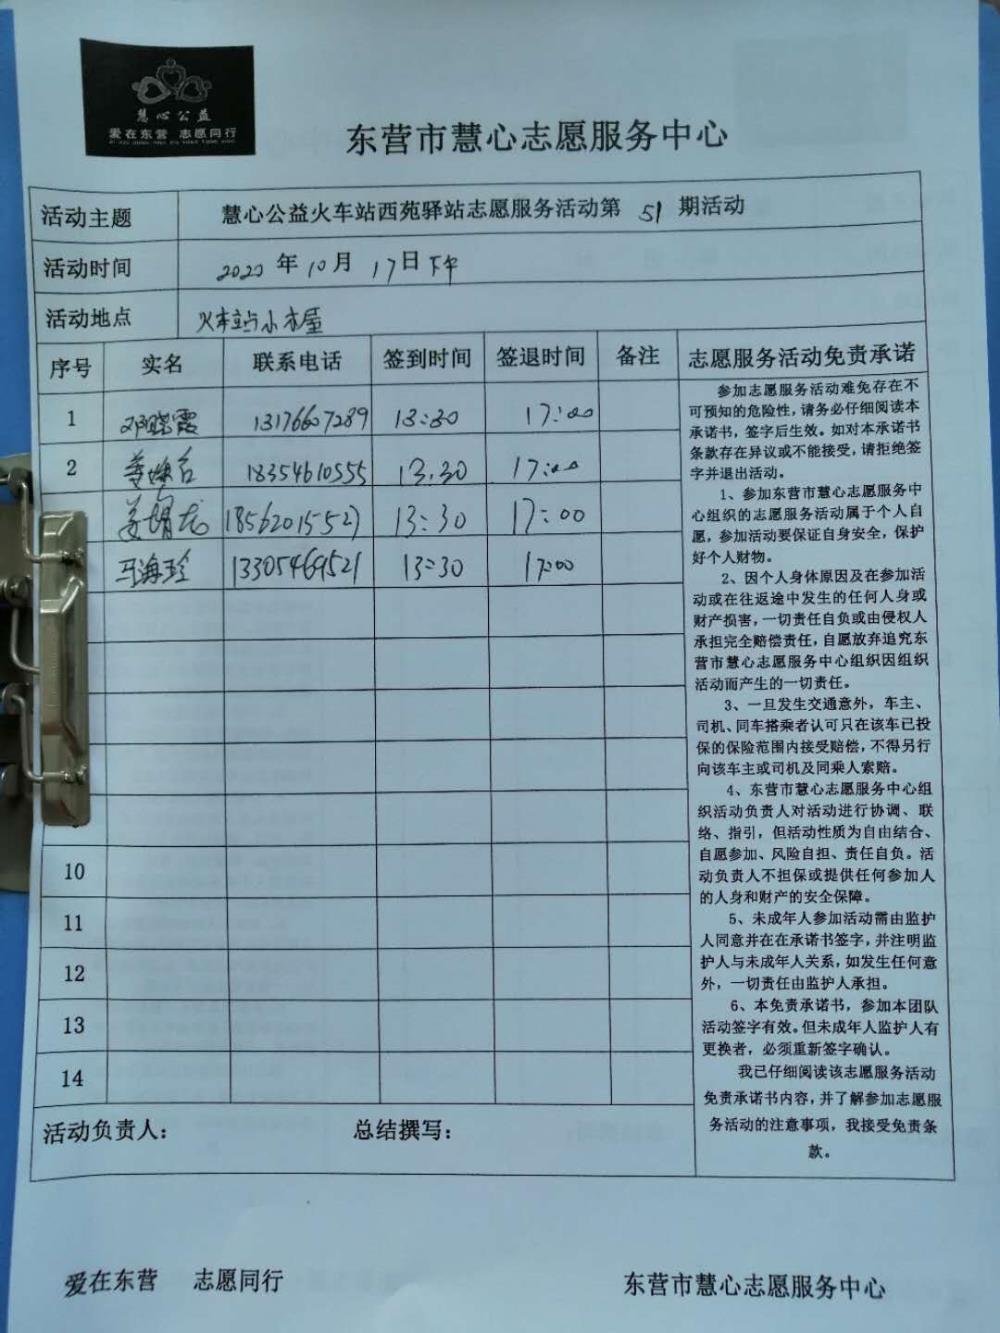 慧心公益
爱在东营 志愿同行
东营市慧心志愿服务中心
活动主题 慧心公益火车站西苑驿站志愿服务活动第 51 期活动
活动时间 2020 年 10 月 17 日 下午
活动地点 火车站小木屋
序号 实名 联系电话 签到时间 签退时间 备注 志愿服务活动免责承诺
1 邓晓霞 13176607289 13:30 17:00
2 18354610555 13:30 17:00
18562015527 13:30 17:00
马海珍 13305469521 13:30 17:00
10
11
12
13
14
参加志愿服务活动难免存在不
可预知的危险性,请务必仔细阅读本
承诺书,签字后生效。如对本承诺书
条款存在异议或不能接受,请拒绝签
字并退出活动。
1、参加东营市慧心志愿服务中
心组织的志愿服务活动属于个人自
愿,参加活动要保证自身安全,保护
好个人财物。
2、因个人身体原因及在参加活
动或在往返途中发生的任何人身或
财产损害,一切责任自负或由侵权人
承担完全赔偿责任,自愿放弃追究东
营市慧心志愿服务中心组织因组织
活动而产生的一切责任。
3、一旦发生交通意外,车主、
司机、同车搭乘者认可只在该车已投
保的保险范围内接受赔偿,不得另行
向该车主或司机及同乘人索赔。
4、东营市慧心志愿服务中心组
织活动负责人对活动进行协调、联
络、指引,但活动性质为自由结合、
自愿参加、风险自担、责任自负。活
动负责人不担保或提供任何参加人
的人身和财产的安全保障。
5、未成年人参加活动需由监护
人同意并在在承诺书签字,并注明监
护人与未成年人关系,如发生任何意
外,一切责任由监护人承担。
6、本免责承诺书,参加本团队
活动签字有效。但未成年人监护人有
更换者,必须重新签字确认。
我已仔细阅读该志愿服务活动
免责承诺书内容,并了解参加志愿服
务活动的注意事项,我接受免责条
款。
活动负责人: 总结撰写:
爱在东营 志愿同行 东营市慧心志愿服务中心